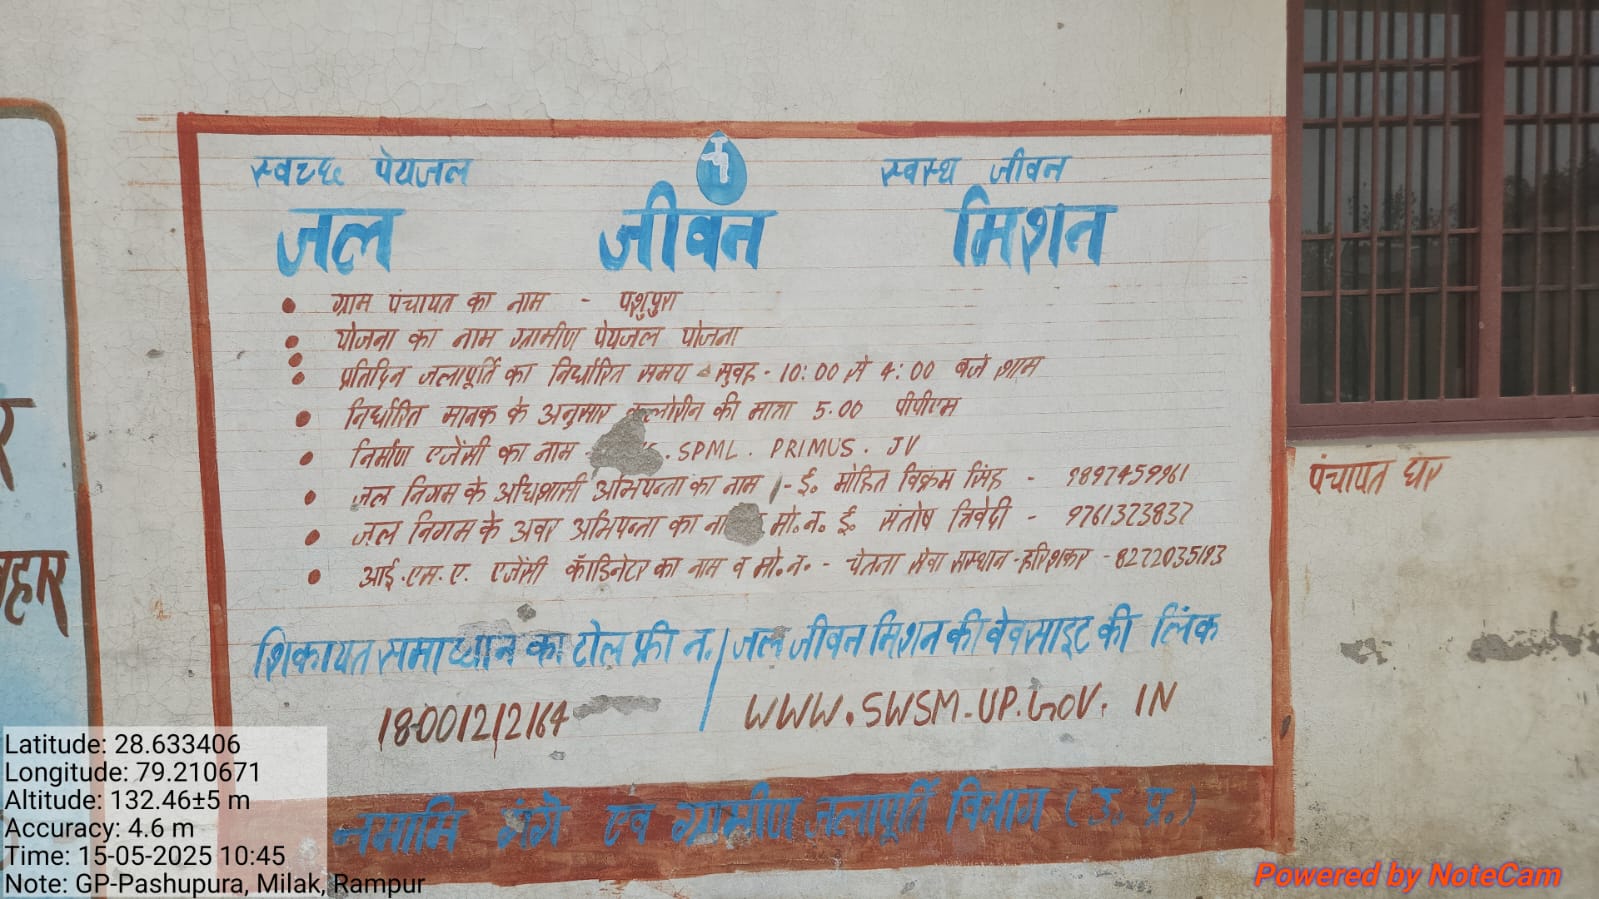 स्वच्छ पेयजल स्वस्थ जीवन
जल जीवन मिशन
• ग्राम पंचायत का नाम - पशुपुरा
• योजना का नाम ग्रामीण पेयजल योजना
• प्रतिदिन जलापूर्ति का निर्धारित समय - सुवह - 10:00 से 4:00 बजे शाम
• निर्धारित मानक के अनुसार क्लोरीन की मात्रा 5.00 पीपीएम
• निर्माण एजेंसी का नाम - . SPML. PRIMUS. JV
• जल निगम के अधिशासी अभियन्ता का नाम - ई. मोहित विक्रम सिंह - 9897459961
• जल निगम के अवर अभियन्ता का मो.न. ई. संतोष त्रिवेदी - 9761323832
• आई.एम.ए. एजेंसी कॉडिनेटर का नाम व मो.न. - चेतना सेवा संस्थान - हरिशंकर - 8272035193
शिकायत समाध्यान का टोल फ्री न. / जल जीवन मिशन की वेवसाइट की लिंक
18001212164 WWW.SWSM-UP.GOV.IN
नमामि गंगे एवं ग्रामीण जलापूर्ति विभाग (उ. प्र.)
पंचायत घर
र
हार
Latitude: 28.633406
Longitude: 79.210671
Altitude: 132.46±5 m
Accuracy: 4.6 m
Time: 15-05-2025 10:45
Note: GP-Pashupura, Milak, Rampur
Powered by NoteCam